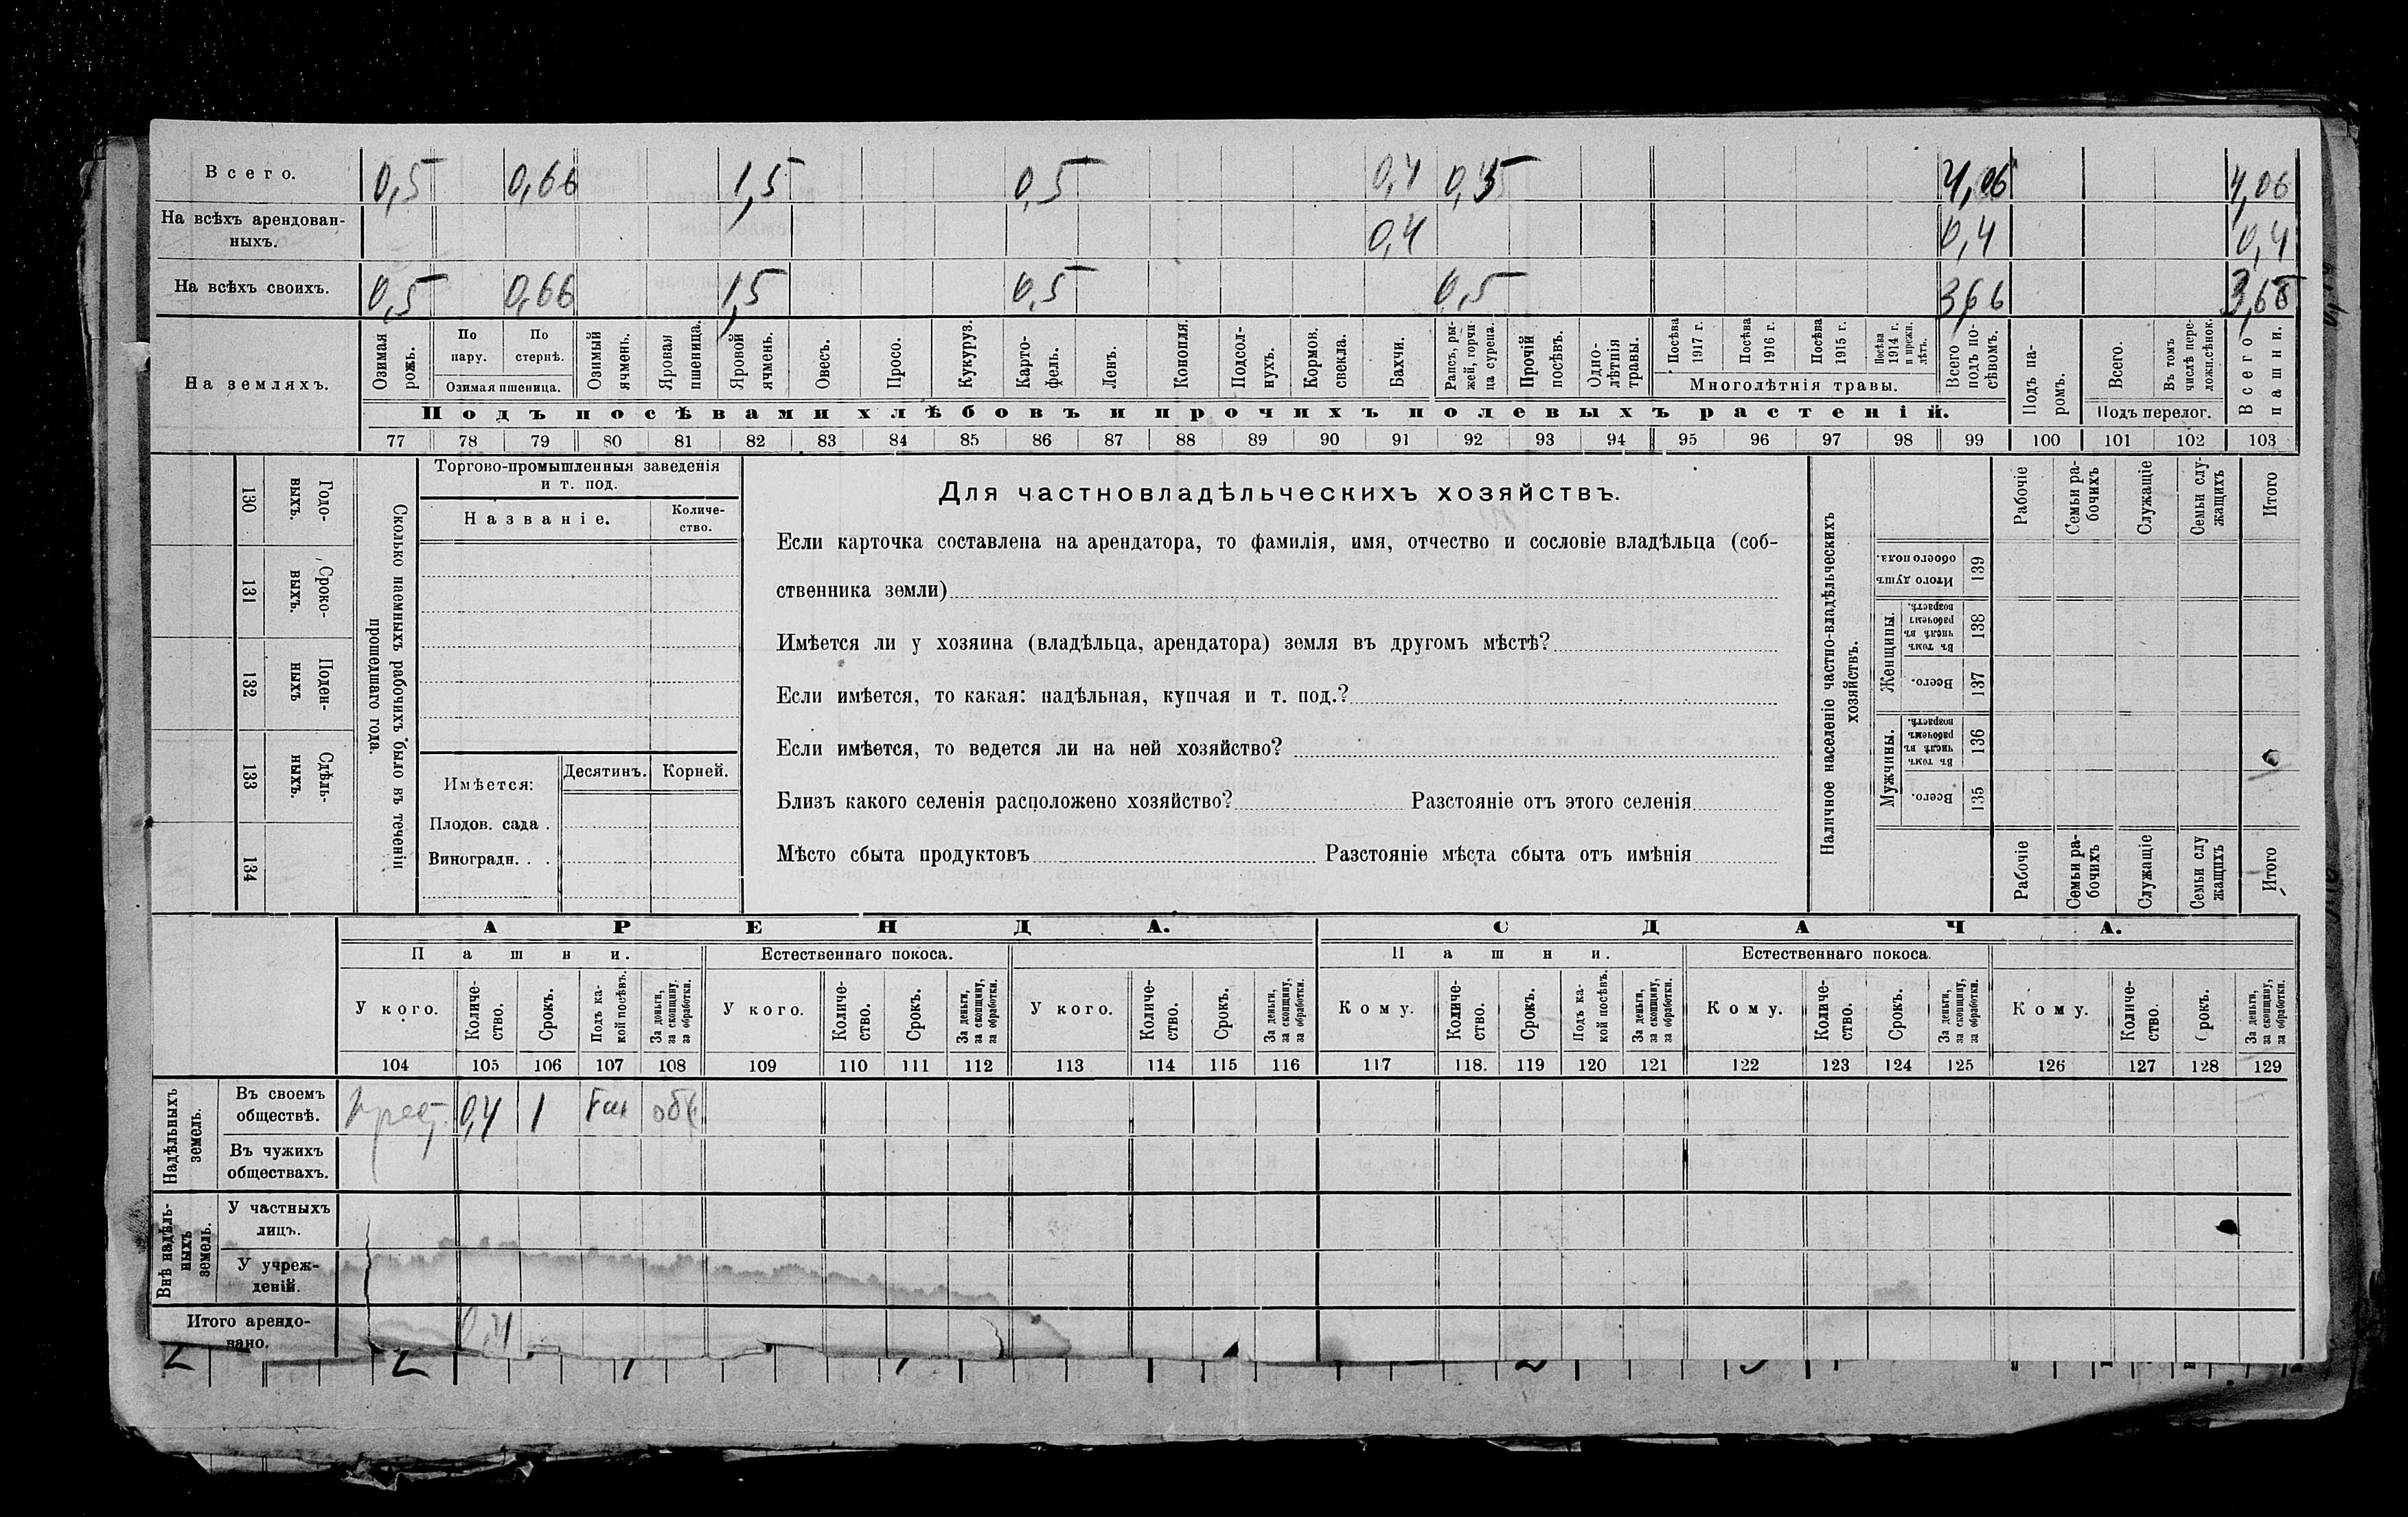 Всего. 0,5 0,66 1,5 0,5 0,4 0,5 4,06 4,06
На всѣхъ арендован-
ныхъ. 0,4 0,4 0,4
На всѣхъ своихъ. 0,5 0,66 1,5 0,5 0,5 3,66 3,66
На земляхъ.
Озимая рожь.
По пару.
По стернѣ.
Озимая пшеница.
Озимый ячмень.
Яровая пшеница.
Яровой ячмень.
Овесъ.
Просо.
Кукуруз.
Карто-
фель.
Ленъ.
Конопля.
Подсол-
нухъ.
Кормов.
свекла.
Бахчи.
Рапсъ, ры-
жей, горчи-
ца сурепа.
Прочій
посѣвъ.
Одно-
лѣтнія
травы.
Посѣва
1917 г.
Посѣва
1916 г.
Посѣва
1915 г.
Посѣва
1914 г.
и прежн.
лѣтъ.
Многолѣтнія травы.
Всего
подъ по-
сѣвомъ.
Подъ па-
ромъ.
Всего.
Въ томъ
числѣ пере-
ложн.сѣнок.
Подъ перелог.
Всего
пашни.
Подъ посѣвами хлѣбовъ и прочихъ полевыхъ растеній.
77 78 79 80 81 82 83 84 85 86 87 88 89 90 91 92 93 94 95 96 97 98 99 100 101 102 103
130 Годо-
выхъ.
131 Сроко-
выхъ.
132 Поден-
ныхъ
133 Сдѣль-
ныхъ.
134
Сколько наемныхъ рабочихъ было въ теченіи
прошедшаго года.
Торгово-промышленныя заведенія
и т. под.
Названіе.
Количе-
ство.
Имѣется: Десятинъ. Корней.
Плодов. сада .
Виноградн. . .
Для частновладѣльческихъ хозяйствъ.
Если карточка составлена на арендатора, то фамилія, имя, отчество и сословіе владѣльца (соб-
ственника земли)
Имѣется ли у хозяина (владѣльца, арендатора) земля въ другомъ мѣстѣ?
Если имѣется, то какая: надѣльная, купчая и т. под.?
Если имѣется, то ведется ли на ней хозяйство?
Близъ какого селенія расположено хозяйство? Разстояніе отъ этого селенія
Мѣсто сбыта продуктовъ Разстояніе мѣста сбыта отъ имѣнія
Наличное населеніе частно-владѣльческихъ
хозяйствъ.
Рабочіе
Семьи ра-
бочихъ
Служащіе
Семьи слу-
жащихъ
Итого
Итого душъ
обоего пола.
139
Женщины.
Въ томъ
числѣ въ
рабочемъ
возрастѣ.
138
Всего.
137
Мужчины.
Въ томъ
числѣ въ
рабочемъ
возрастѣ.
136
Всего.
135
Рабочіе
Семьи ра-
бочихъ
Служащіе
Семьи слу
жащихъ
Итого
АРЕНДА. СДАЧА.
Пашни. Естественнаго покоса. Пашни. Естественнаго покоса.
У кого.
Количе-
ство.
Срокъ.
Подъ ка-
кой посѣвъ.
За деньги,
за скопщину,
за обработки.
У кого.
Количе-
ство.
Срокъ.
За деньги,
за скопщину,
за обработки.
У кого.
Количе-
ство.
Срокъ.
За деньги,
за скопщину,
за обработки.
Кому.
Количе-
ство.
Срокъ.
Подъ ка-
кой посѣвъ.
За деньги,
за скопщину,
за обработки.
Кому.
Количе-
ство.
Срокъ.
За деньги,
за скопщину,
за обработки.
Кому.
Количе-
ство.
Срокъ.
За деньги,
за скопщину,
за обработки.
104 105 106 107 108 109 110 111 112 113 114 115 116 117 118. 119 120 121 122 123 124 125 126 127 128 129
Надѣльныхъ
земель.
Въ своемъ
обществѣ. 0,4 1
Въ чужихъ
обществахъ.
Внѣ надѣль-
ныхъ
земель.
У частныхъ
лицъ.
У учреж-
деній.
Итого арендо-
вано. 0,4